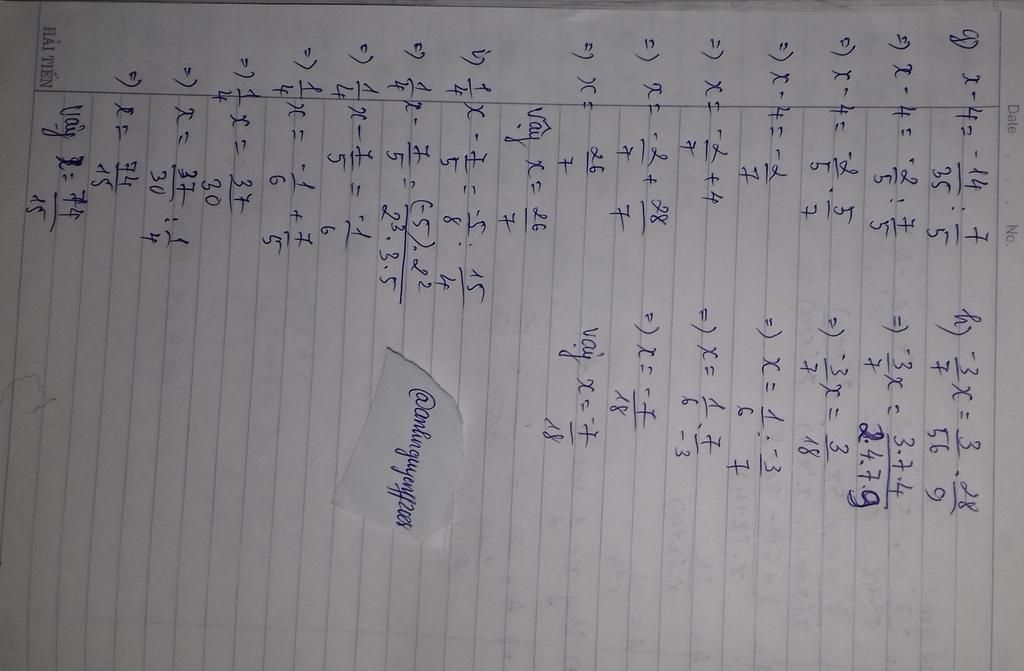 Date . . . No.
g) x - 4 = -14/35 : 7/5
=) x - 4 = -2/5 : 7/5
=) x - 4 = -2/5 . 5/7
=) x - 4 = -2/7
=) x = -2/7 + 4
=) x = -2/7 + 28/7
=) x = 26/7
Vậy x = 26/7
h) -3/7 x = 3/56 . 28/9
=) -3/7 x = 3.7.4/2.4.7.9
=) -3/7 x = 3/18
=) x = 1/6 : -3/7
=) x = 1/6 . 7/-3
=) x = -7/18
Vậy x = -7/18
i) 1/4 x - 7/5 = -5/8 : 15/4
=) 1/4 x - 7/5 = (-5).2²/2³.3.5
=) 1/4 x - 7/5 = -1/6
=) 1/4 x = -1/6 + 7/5
=) 1/4 x = 37/30
=) x = 37/30 : 1/4
=) x = 74/15
Vậy x = 74/15
HẢI TIẾN